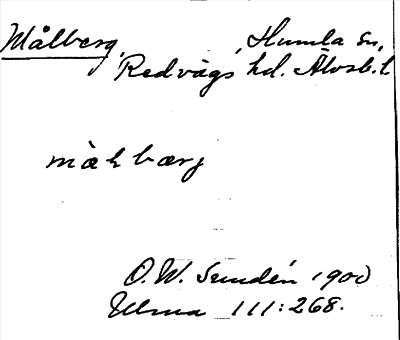 Målberg, Humla sn,
Redvägs hd. Älvsb. l
målbærj
O. W. Sundén 1900
Ulma 111:268.